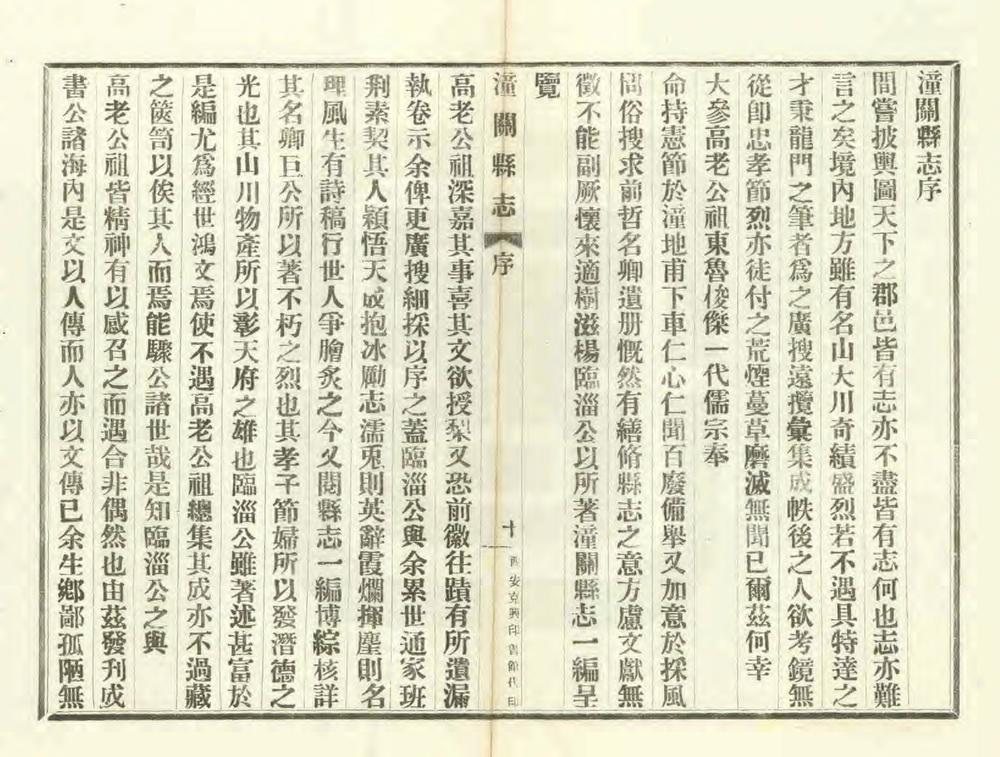 潼關縣志序
間嘗披輿圖天下之郡邑皆有志亦不盡皆有志何也志亦難
言之矣境內地方雖有名山大川奇績盛烈若不遇具特達之
才秉龍門之筆者爲之廣搜遠攬彙集成帙後之人欲考鏡無
從卽忠孝節烈亦徒付之荒煙蔓草磨滅無聞已爾茲何幸
大參高老公祖東魯俊傑一代儒宗奉
命持憲節於潼地甫下車仁心仁聞百廢備舉又加意於採風
問俗搜求前哲名卿遺册慨然有繕脩縣志之意方慮文獻無
徵不能副厥懷來適樹滋楊臨淄公以所著潼關縣志一編呈
覽
潼關縣志 序 十 西安克興印書館代印
高老公祖深嘉其事喜其文欲授梨又恐前徽往蹟有所遺漏
執卷示余俾更廣搜細採以序之蓋臨淄公與余累世通家班
荆素契其人穎悟天成抱冰勵志濡兎則英辭霞爛揮麈則名
理風生有詩稿行世人爭膾炙之今又閱縣志一編博綜核詳
其名卿巨公所以著不朽之烈也其孝子節婦所以發潛德之
光也其山川物產所以彰天府之雄也臨淄公雖著述甚富於
是編尤爲經世鴻文焉使不遇高老公祖總集其成亦不過藏
之篋笥以俟其人而焉能驟公諸世哉是知臨淄公之與
高老公祖皆精神有以感召之而遇合非偶然也由茲發刊成
書公諸海內是文以人傳而人亦以文傳已余生鄉鄙孤陋無